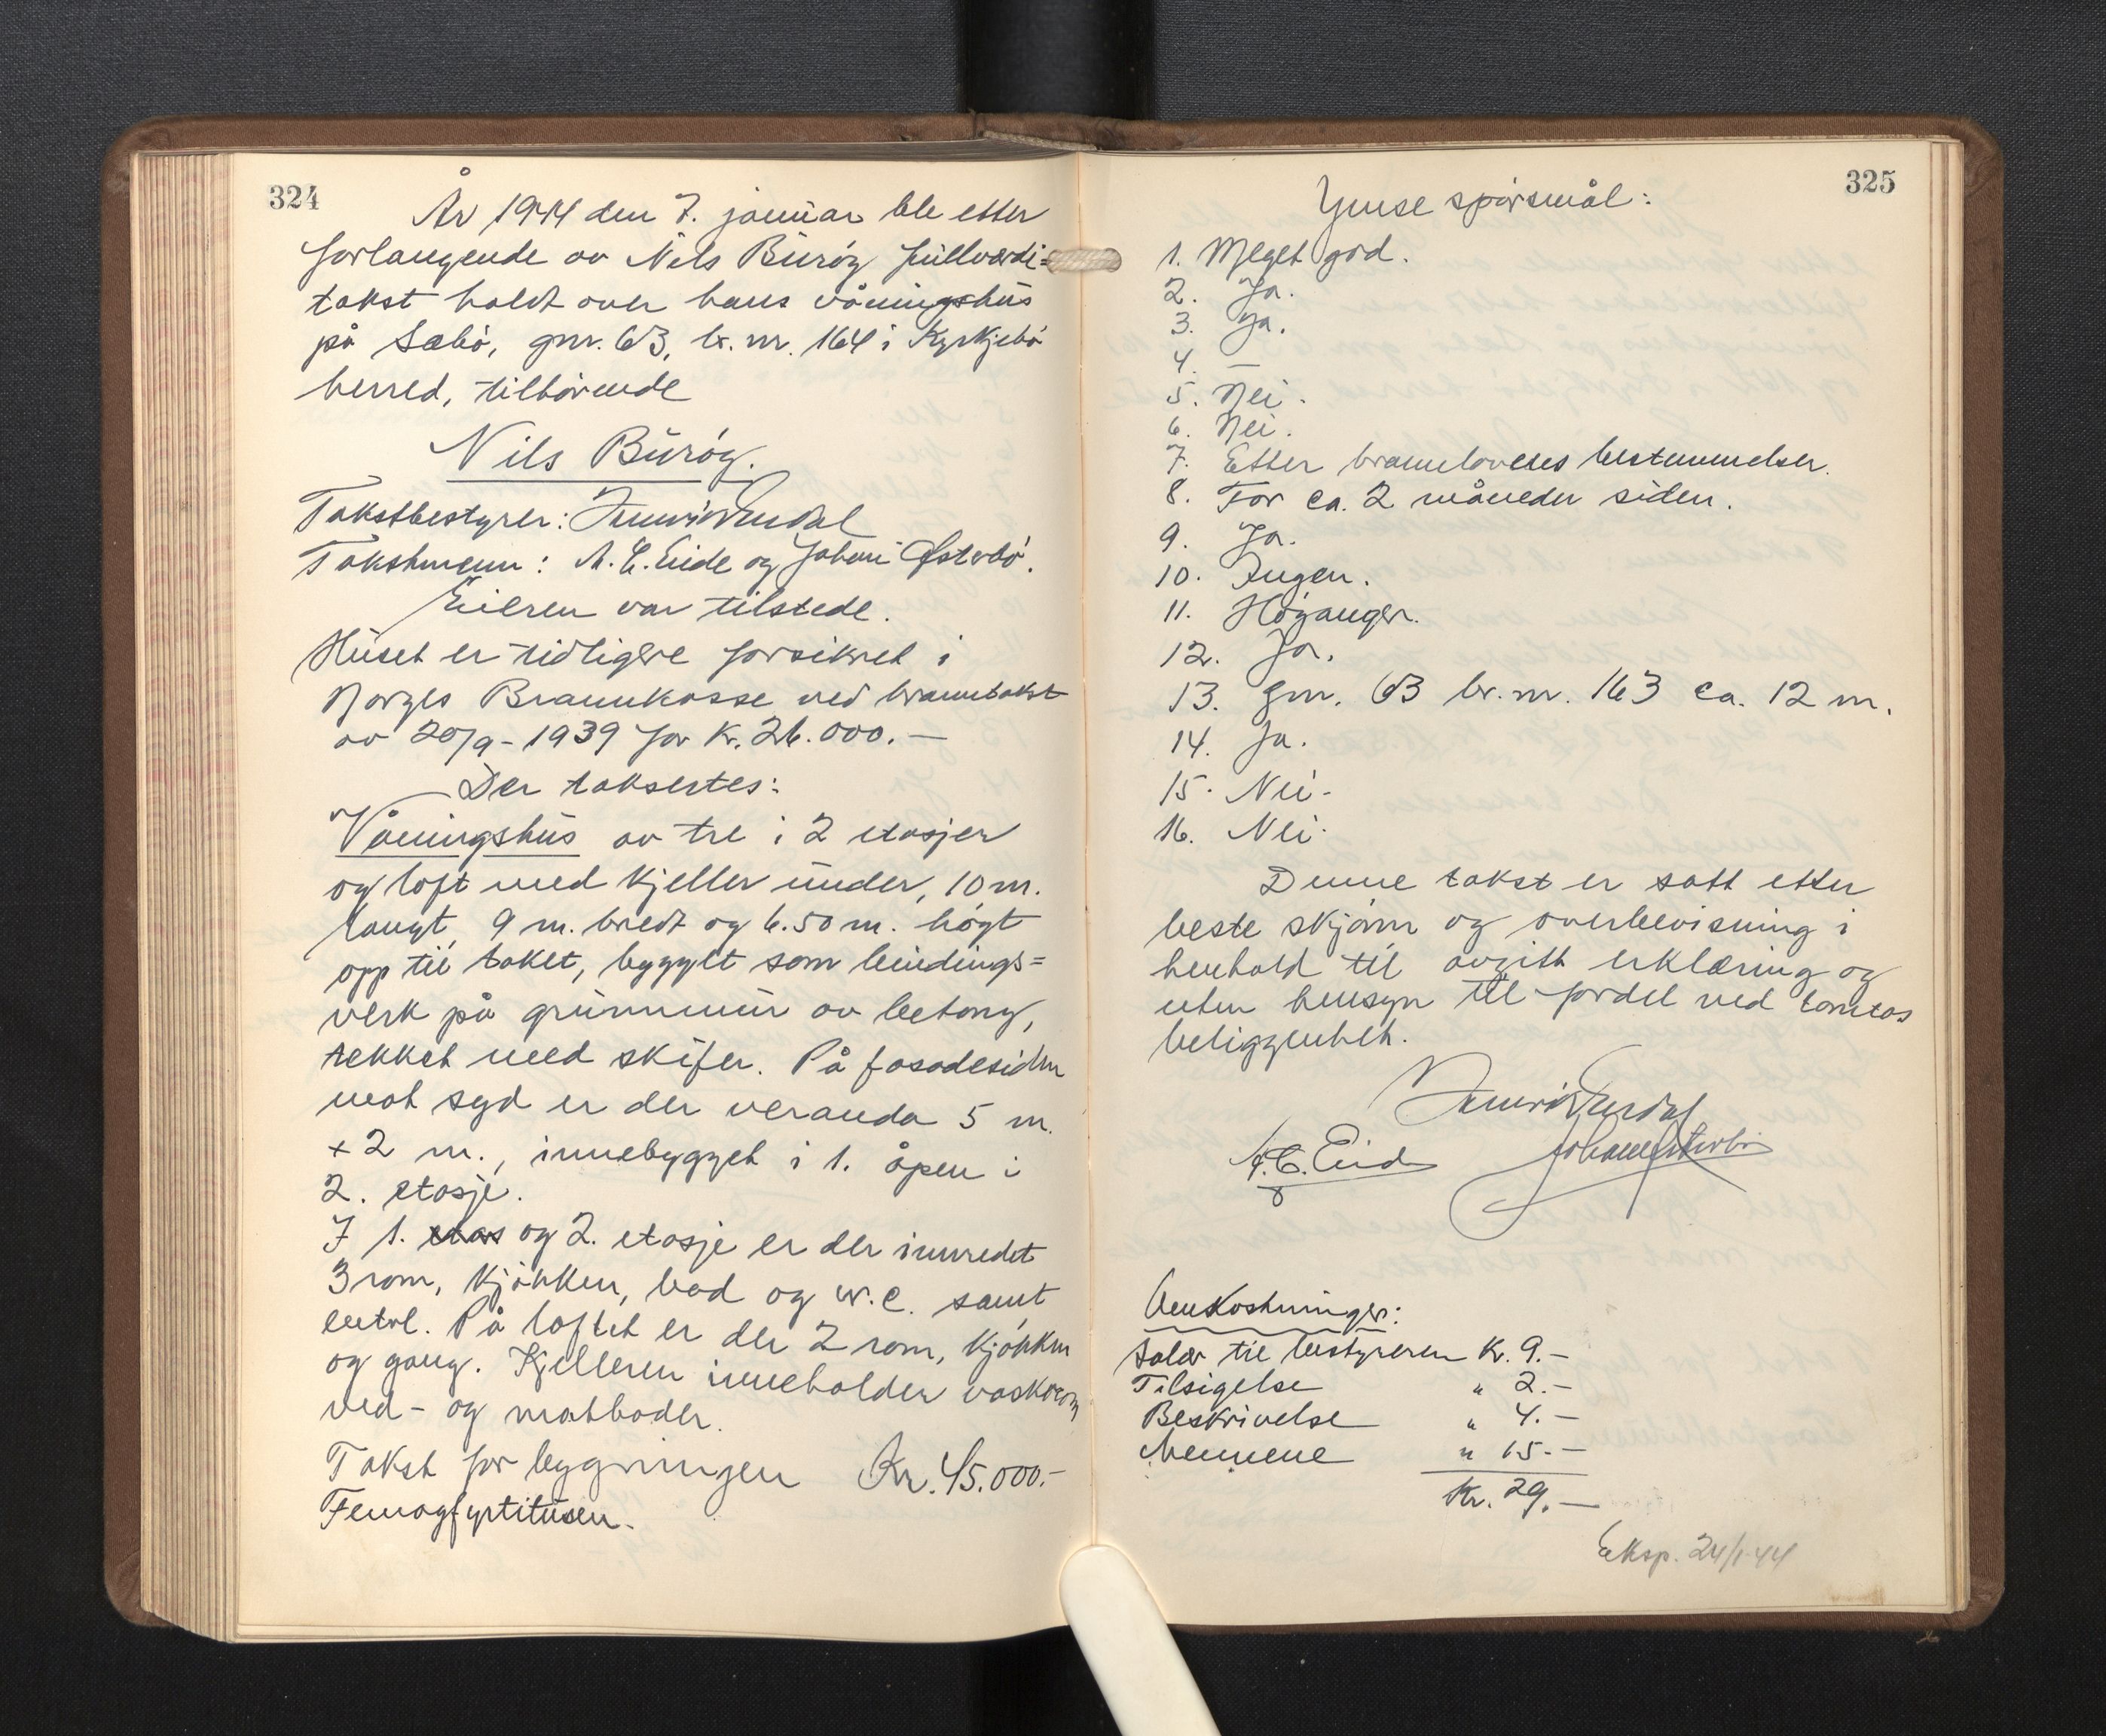 324
År 1944 den 7. januar ble etter
forlangende av Nils Búróy fúllverdi=
takst holdt over hans våningshús
på Sæbó, gnr. 63, br. nr. 164 i Kyrkjebó
herred, tilhórende
Nils Búróy.
Takstbestyrer:
Takstmenn: A. C. Eide og Johan Østerbó.
Eieren var tilstede.
Húset er tidligere forsikret i
Norges Brannkasse ved branntakst
av 20/9-1939 for Kr. 26.000.—
Der taksertes:
Våningshús av tre i 2 etasjer
og loft med kjeller únder, 10 m.
langt, 9 m. bredt og 6.50 m. hógt
opp til taket, bygget som bindings=
verk på grúnnmúr av betong,
tekket med skifer. På fasadesiden
mot syd er der veranda 5 m.
+ 2 m., innebygget i 1. åpen i
2. etasje.
I 1. etas og 2. etasje er der innredet
3 rom, kjókken, bad og w.c. samt
entré. På loftet er der 2 rom, kjókken
og gang. Kjelleren inneholder vaskerom
ved- og matboder.
Takst for bygningen Kr. 45.000.-
Femogfyrtitúsen.
325
Ymse spórsmål:
1. Meget god.
2. Ja.
3. Ja.
4. —
5. Nei.
6. Nei.
7. Etter brannlovens bestemmelser.
8. For ca. 2 måneder siden.
9. Ja.
10. Ingen.
11. Hóyanger.
12. Ja.
13. gnr. 63 br. nr. 163 ca. 12 m.
14. Ja.
15. Nei.
16. Nei.
Denne takst er satt etter
beste skjónn og overbevisning i
henhold til avgitt erklæring og
uten hensyn til fordel ved tomtas
beliggenhet.
A. C. Eide Johan Østerbó
Omkostninger:
Salær til bestyreren Kr. 9.—
Tilsigelse " 2.—
Beskrivelse " 4.—
Mennene " 15.—
Kr. 29.—
Eksp. 24/1-44